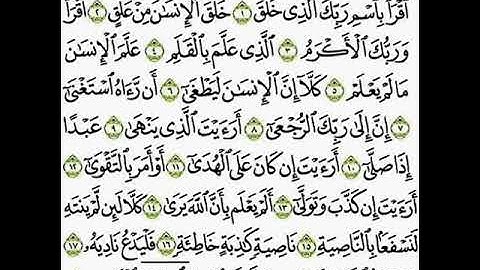 ٱقۡرَأۡ بِٱسۡمِ رَبِّكَ ٱلَّذِي خَلَقَ ١ خَلَقَ ٱلۡإِنسَٰنَ مِنۡ عَلَقٍ ٢ ٱقۡرَأۡ
وَرَبُّكَ ٱلۡأَكۡرَمُ ٣ ٱلَّذِي عَلَّمَ بِٱلۡقَلَمِ ٤ عَلَّمَ ٱلۡإِنسَٰنَ
مَا لَمۡ يَعۡلَمۡ ٥ كَلَّآ إِنَّ ٱلۡإِنسَٰنَ لَيَطۡغَىٰٓ ٦ أَن رَّءَاهُ ٱسۡتَغۡنَىٰٓ
٧ إِنَّ إِلَىٰ رَبِّكَ ٱلرُّجۡعَىٰٓ ٨ أَرَءَيۡتَ ٱلَّذِي يَنۡهَىٰ ٩ عَبۡدًا
إِذَا صَلَّىٰٓ ١٠ أَرَءَيۡتَ إِن كَانَ عَلَى ٱلۡهُدَىٰٓ ١١ أَوۡ أَمَرَ بِٱلتَّقۡوَىٰٓ ١٢
أَرَءَيۡتَ إِن كَذَّبَ وَتَوَلَّىٰٓ ١٣ أَلَمۡ يَعۡلَم بِأَنَّ ٱللَّهَ يَرَىٰ ١٤ كَلَّا لَئِن لَّمۡ يَنتَهِ
لَنَسۡفَعَۢا بِٱلنَّاصِيَةِ ١٥ نَاصِيَةٖ كَٰذِبَةٍ خَاطِئَةٖ ١٦ فَلۡيَدۡعُ نَادِيَهُۥ ١٧